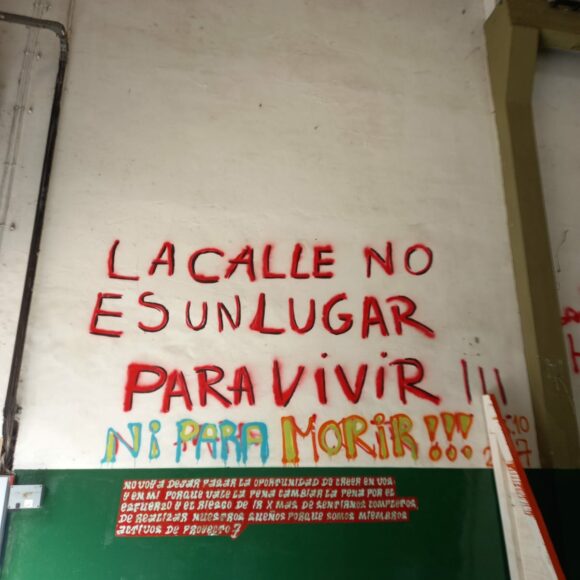 LA CALLE NO
ES UN LUGAR
PARA VIVIR !!!
NI PARA MORIR !!!
NO VOY A DEJAR PASAR LA OPORTUNIDAD DE CREER EN VOS
Y EN MI PORQUE VALE LA PENA CAMBIAR LA PENA POR EL
ESFUERZO Y EL RIESGO DE IR X MAS DE SENTIRNOS COMPLETOS,
DE REALIZAR NUESTROS SUEÑOS PORQUE SOMOS MIEMBROS
ACTIVOS DE PROYECTO 7